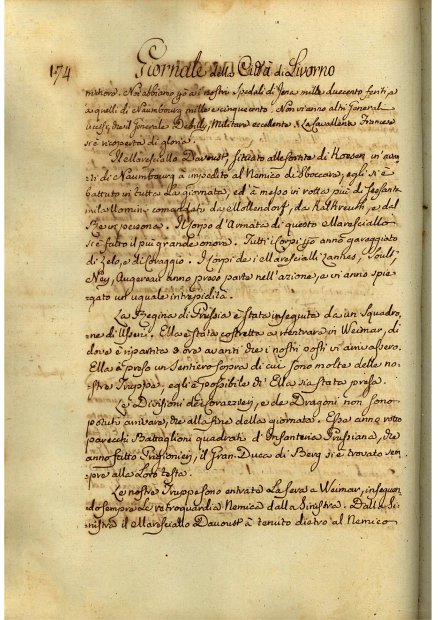 174 Giornale della Città di Livorno
minore. Noi abbiamo già ai nostri Spedali di Jena mille duecento feriti, e
a quelli di Naumbourg mille e cinquecento. Non vi anno altri Generali
uccisi, che il Generale Debilly, Militare eccellente. La Cavalleria Francese
si è ricoperta di gloria.
Il Maresciallo Davoust, situato alle sortite di Kosen in avan
ti di Naumbourg à impedito al Nemico di sboccare; egli si è
battuto in tutta la giornata, ed à messo in rotta più di Sessanta
mila Uomini comandati da Mollendorf, da Kalkreuth, e dal
Re in persona. Il Corpo d'Armata di questo Maresciallo
si è fatto il più grande onore. Tutti i Corpi anno gareggiato
di zelo, e di Coraggio. I Corpi dei Marescialli Lannes, Soult
Ney, Augereau anno preso parte nell'azione, e vi anno spie
gato un'uguale intrepidità.
La Regina di Prussia è stata inseguita da un Squadro,
ne di Usseri. Ella è stata costretta a rientrare in Weimar, di
dove è ripartita 3 ore avanti che i nostri posti vi arrivassero.
Ella à preso un Sentiero sopra di cui sono molte delle no-
stre Truppe, egli è possibile che Ella sia stata presa.
Le Divisioni dei Corazzieri, e de Dragoni non sono
potuti arrivare, che alla fine della giornata. Essi anno rotto
parecchi Battaglioni quadrati d'Infanteria Prussiana, che
anno fatto Prigionieri, il Gran-Duca di Berg si è trovato sem
pre alla loro testa.
Le nostre Truppe sono entrate la sera a Weimar, inseguen
do sempre la retroguardia Nemica dalla Sinistra. Dalla Si-
nistra il Maresciallo Davoust à tenuto dietro al Nemico